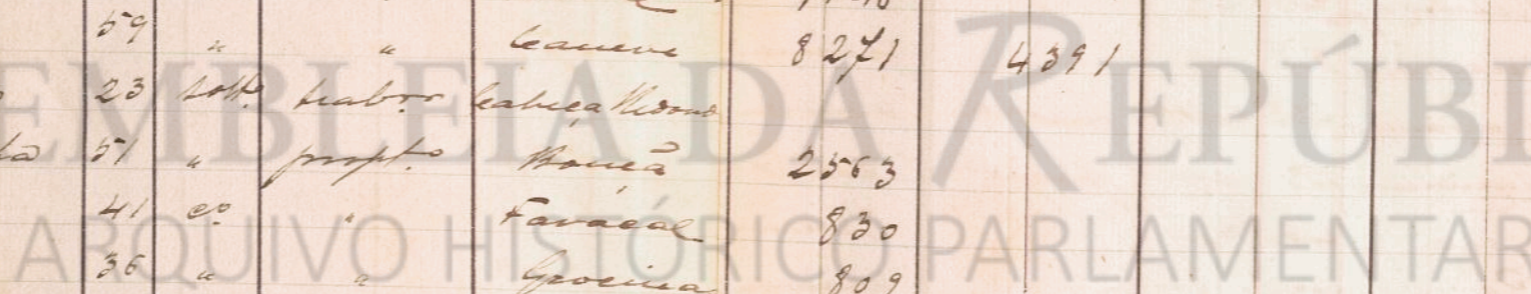 59 " " 8271 4391
23 soltº trabor Cabeça Redond
51 " proptº 2563
41 cº " Favacal 830
36 " " 809
EMBLEIA DA REPÚBL
ARQUIVO HISTÓRICO PARLAMENTAR